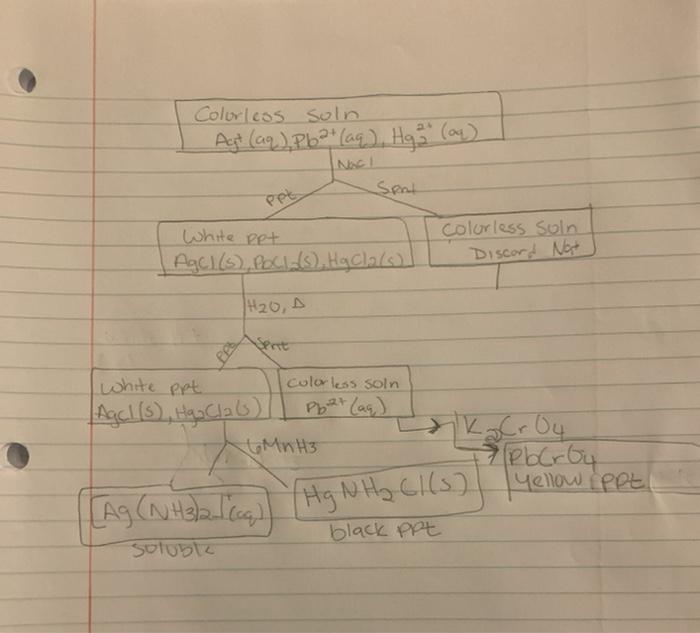 Colorless soln
Ag+ (aq), Pb2+ (aq), Hg2 2+ (aq)
NaCl
ppt
Spnt
White ppt
AgCl(s), PbCl2(s), HgCl2(s)
Colorless soln
Discard Na+
H2O, Δ
ppt
Spnt
White ppt
AgCl(s), Hg2Cl2(s)
Colorless soln
Pb2+ (aq)
K2CrO4
PbCrO4
Yellow ppt
6MnH3
[Ag(NH3)2]+ (aq)
soluble
HgNH2Cl(s)
black ppt